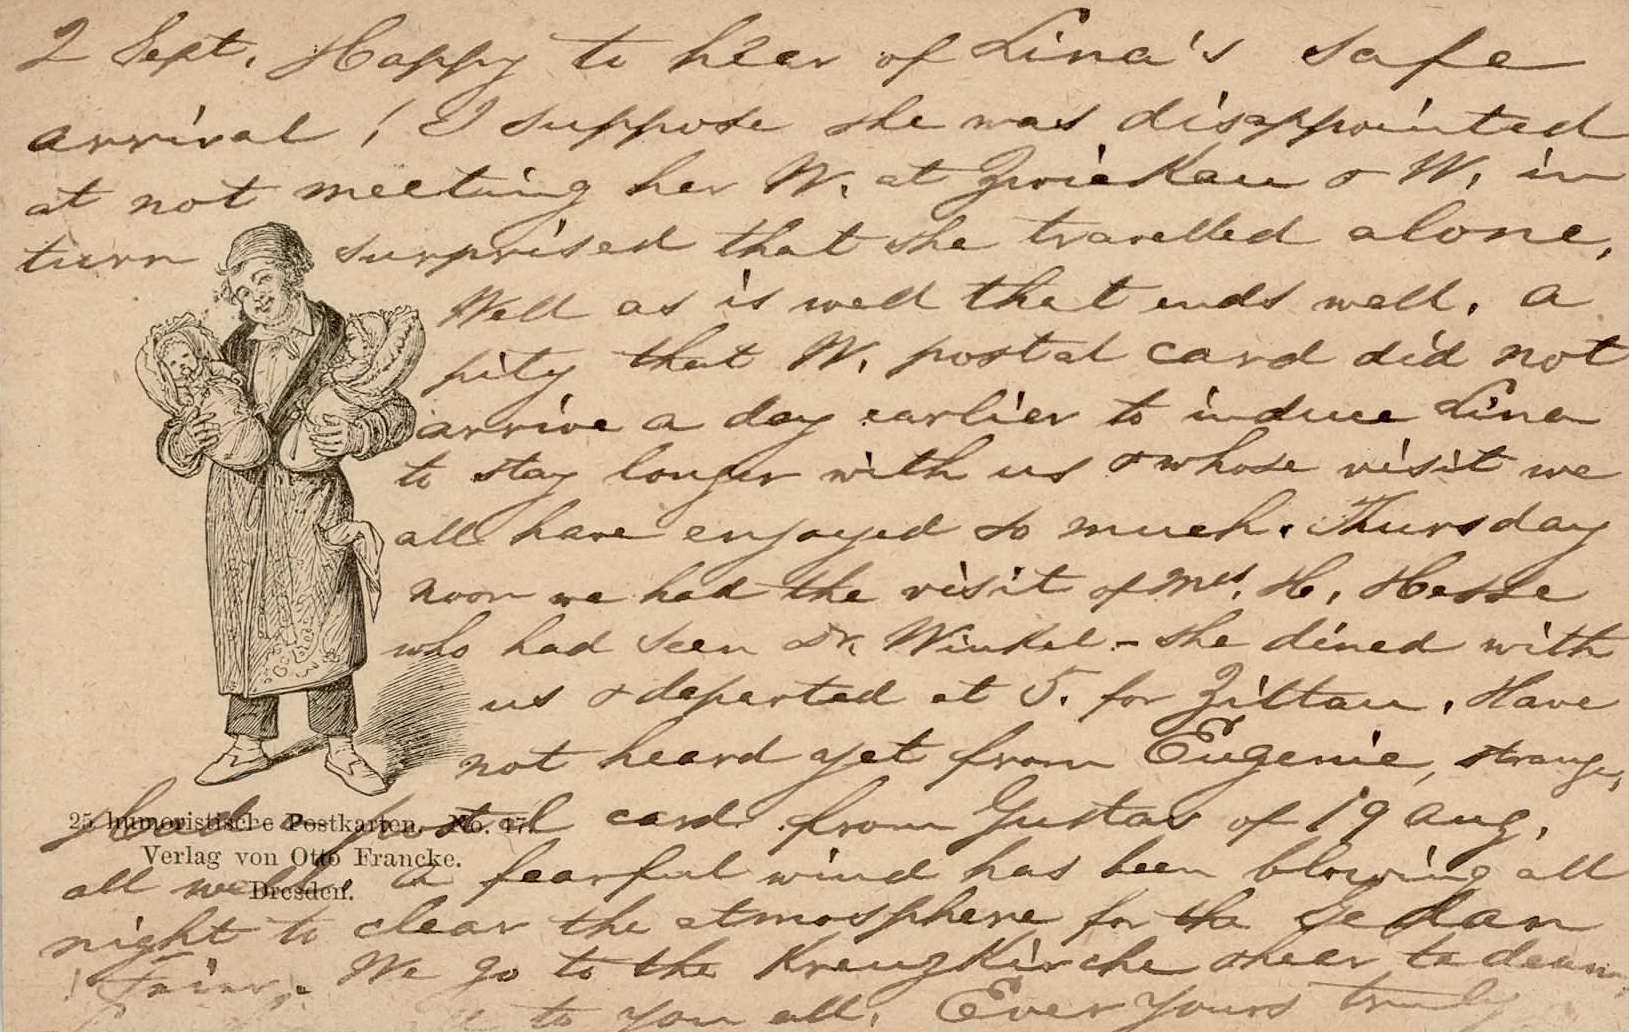 2 Sept. Happy to hear of Lina's safe
arrival! I suppose she was disappointed
at not meeting her W. at Zwickau & W. in
turn surprised that she travelled alone,
Well as is well that ends well. A
pity that W. postal card did not
arrive a day earlier to induce Lina
to stay longer with us & whose visit we
all have enjoyed so much. Thursday
noon we had the visit of Mrs. H. Hesse
who had seen Dr. Winkel - she dined with
us & departed at 5. for Zittau. Have
not heard yet from Eugenie, strange,
postal card from Gustav of 19 Aug.
25 humoristische Postkarten. No. 17.
Verlag von Otto Francke.
Dresden.
all well. A fearful wind has been blowing all
night to clear the atmosphere for the Sedan
Feier. We go to the Kreuzkirche & hear te deum
to you all. Ever Yours truly